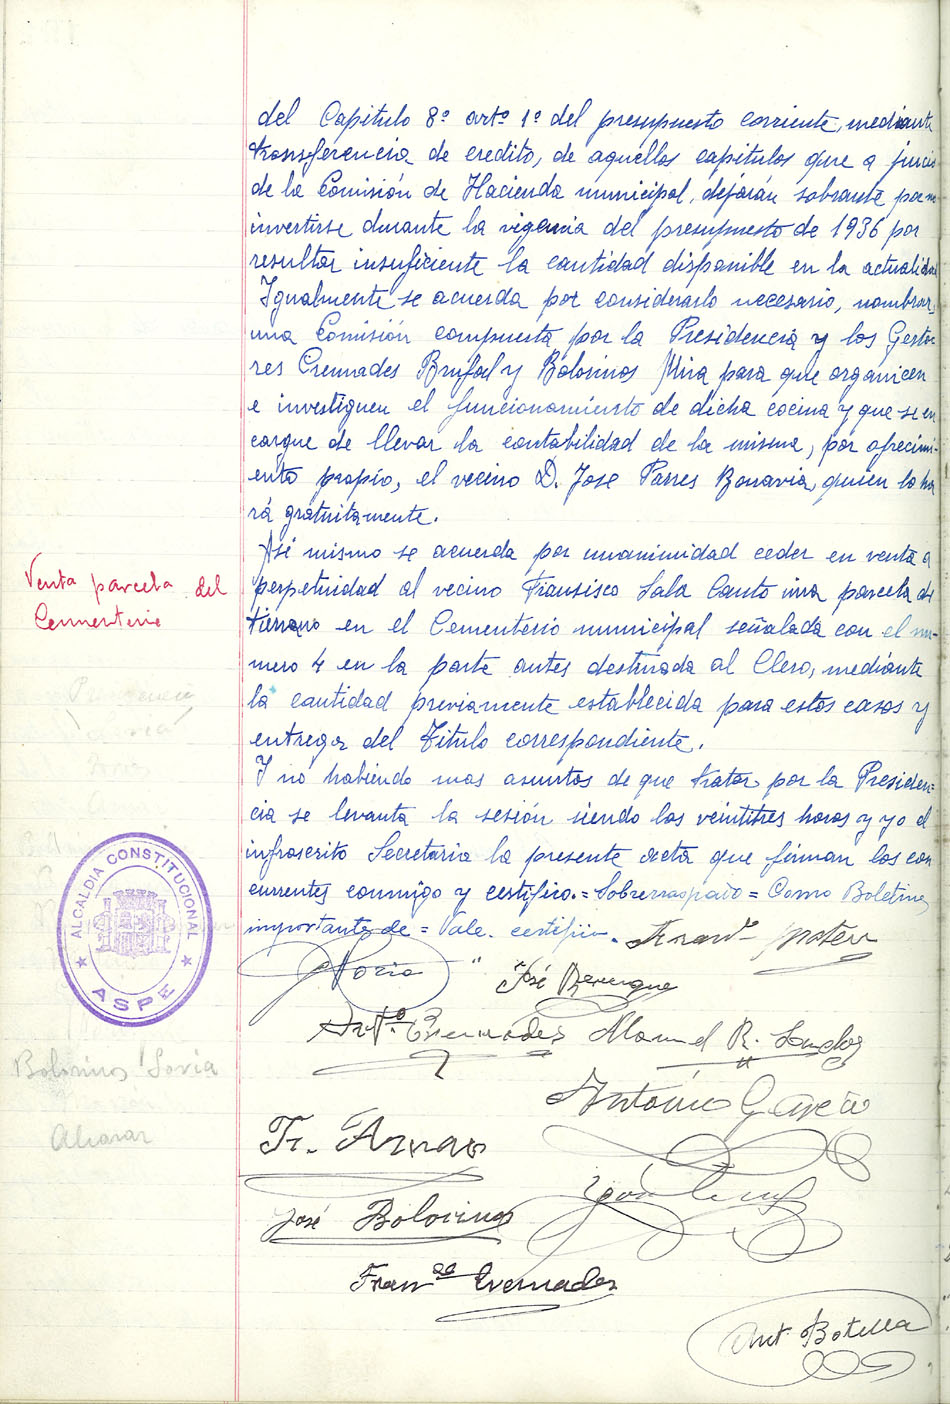 del Capitulo 8º artº 1º del presupuesto corriente, mediante
transferencia de credito, de aquellos capitulos que a juicio
de la Comisión de Hacienda municipal, dejarán sobrante para
invertirse durante la vigencia del presupuesto de 1936 por
resultar insuficiente la cantidad disponible en la actualidad
Igualmente se acuerda por considerarlo necesario, nombrar
una Comisión compuesta por la Presidencia y los Gesto
res Cremades Brufal y Bolorinos Mira para que organicen
e investiguen el funcionamiento de dicha cocina y que se en
cargue de llevar la contabilidad de la misma, por ofrecimi-
ento propio, el vecino D. Jose Parres Bonavia, quien lo ha
rá gratuitamente.
Asi mismo se acuerda por unanimidad ceder en venta a
Venta parcela del
Cementerio
perpetuidad al vecino Fransisco Sala Canto una parcela de
terreno en el Cementerio municipal señalada con el nu-
mero 4 en la parte antes destinada al Clero, mediante
la cantidad previamente establecida para estos casos y
entrega del Titulo correspondiente.
Y no habiendo mas asuntos de que tratar por la Presiden=
cia se levanta la sesión siendo las veintitres horas y yo el
infrascrito Secretario la presente acta que firman los con
currentes conmigo y certifico.=Sobrerraspado = Como Boletines
importante de = Vale. certifico.
ALCALDIA CONSTITUCIONAL
ASPE
José Berenguer
Antº Cremades Manuel R.
Bolorinos Soria
Antonio García
Alcaraz
Fr. Aznar
José Bolorinos
Franco Cremades
Ant. Botella